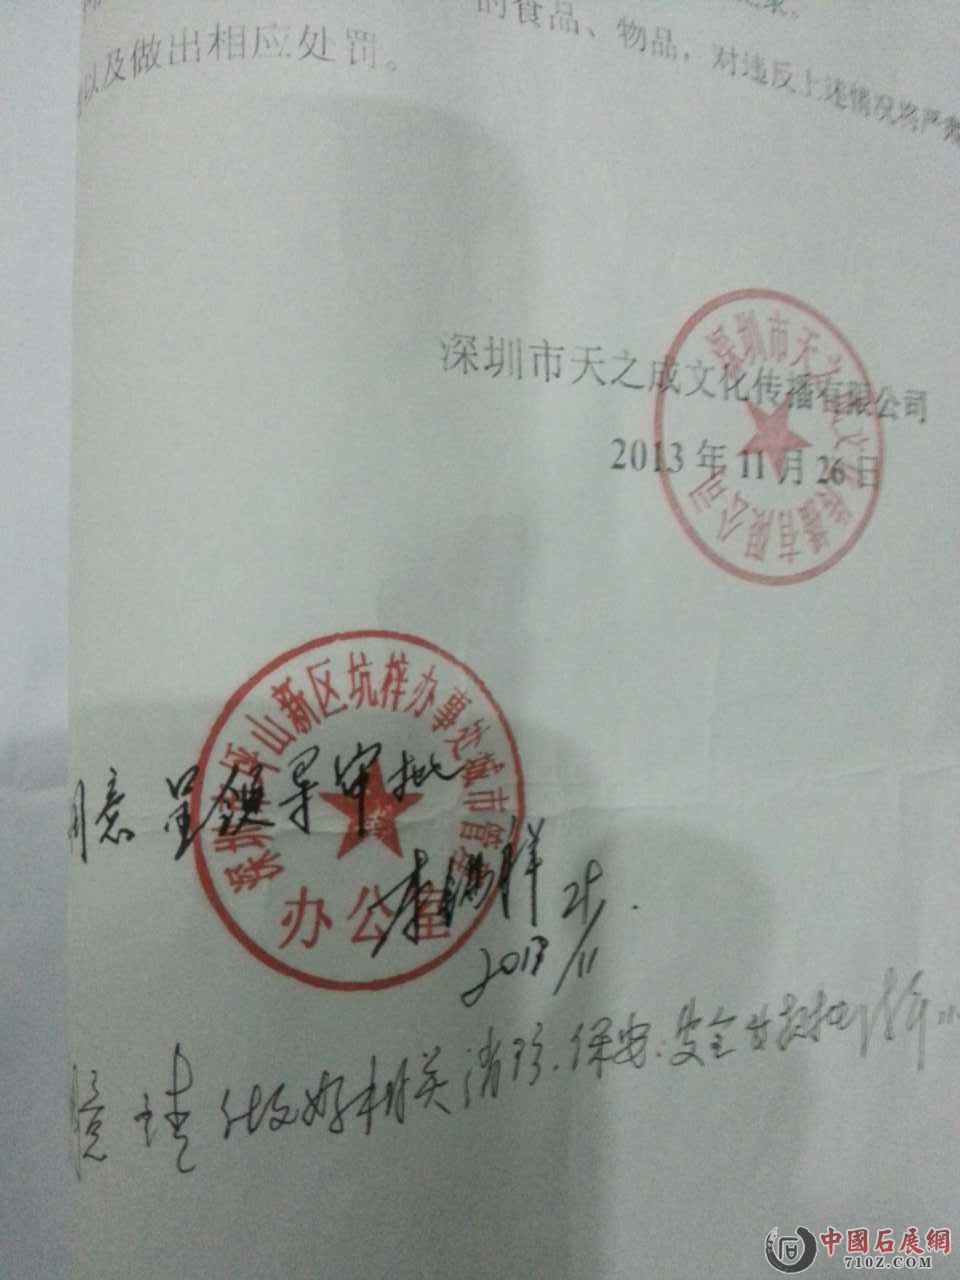 的食品、物品，对违反上述情况将严
以及做出相应处罚。
深圳市天之成文化传播有限公司
2013年11月26日
深圳市天之成文化传播有限公司
坪山新区坑梓办事处城市管
办公室
同意 呈领导审批
李 祥
2013/11
意 请做好相关消防、保安、安全
中國石展網
710Z.COM